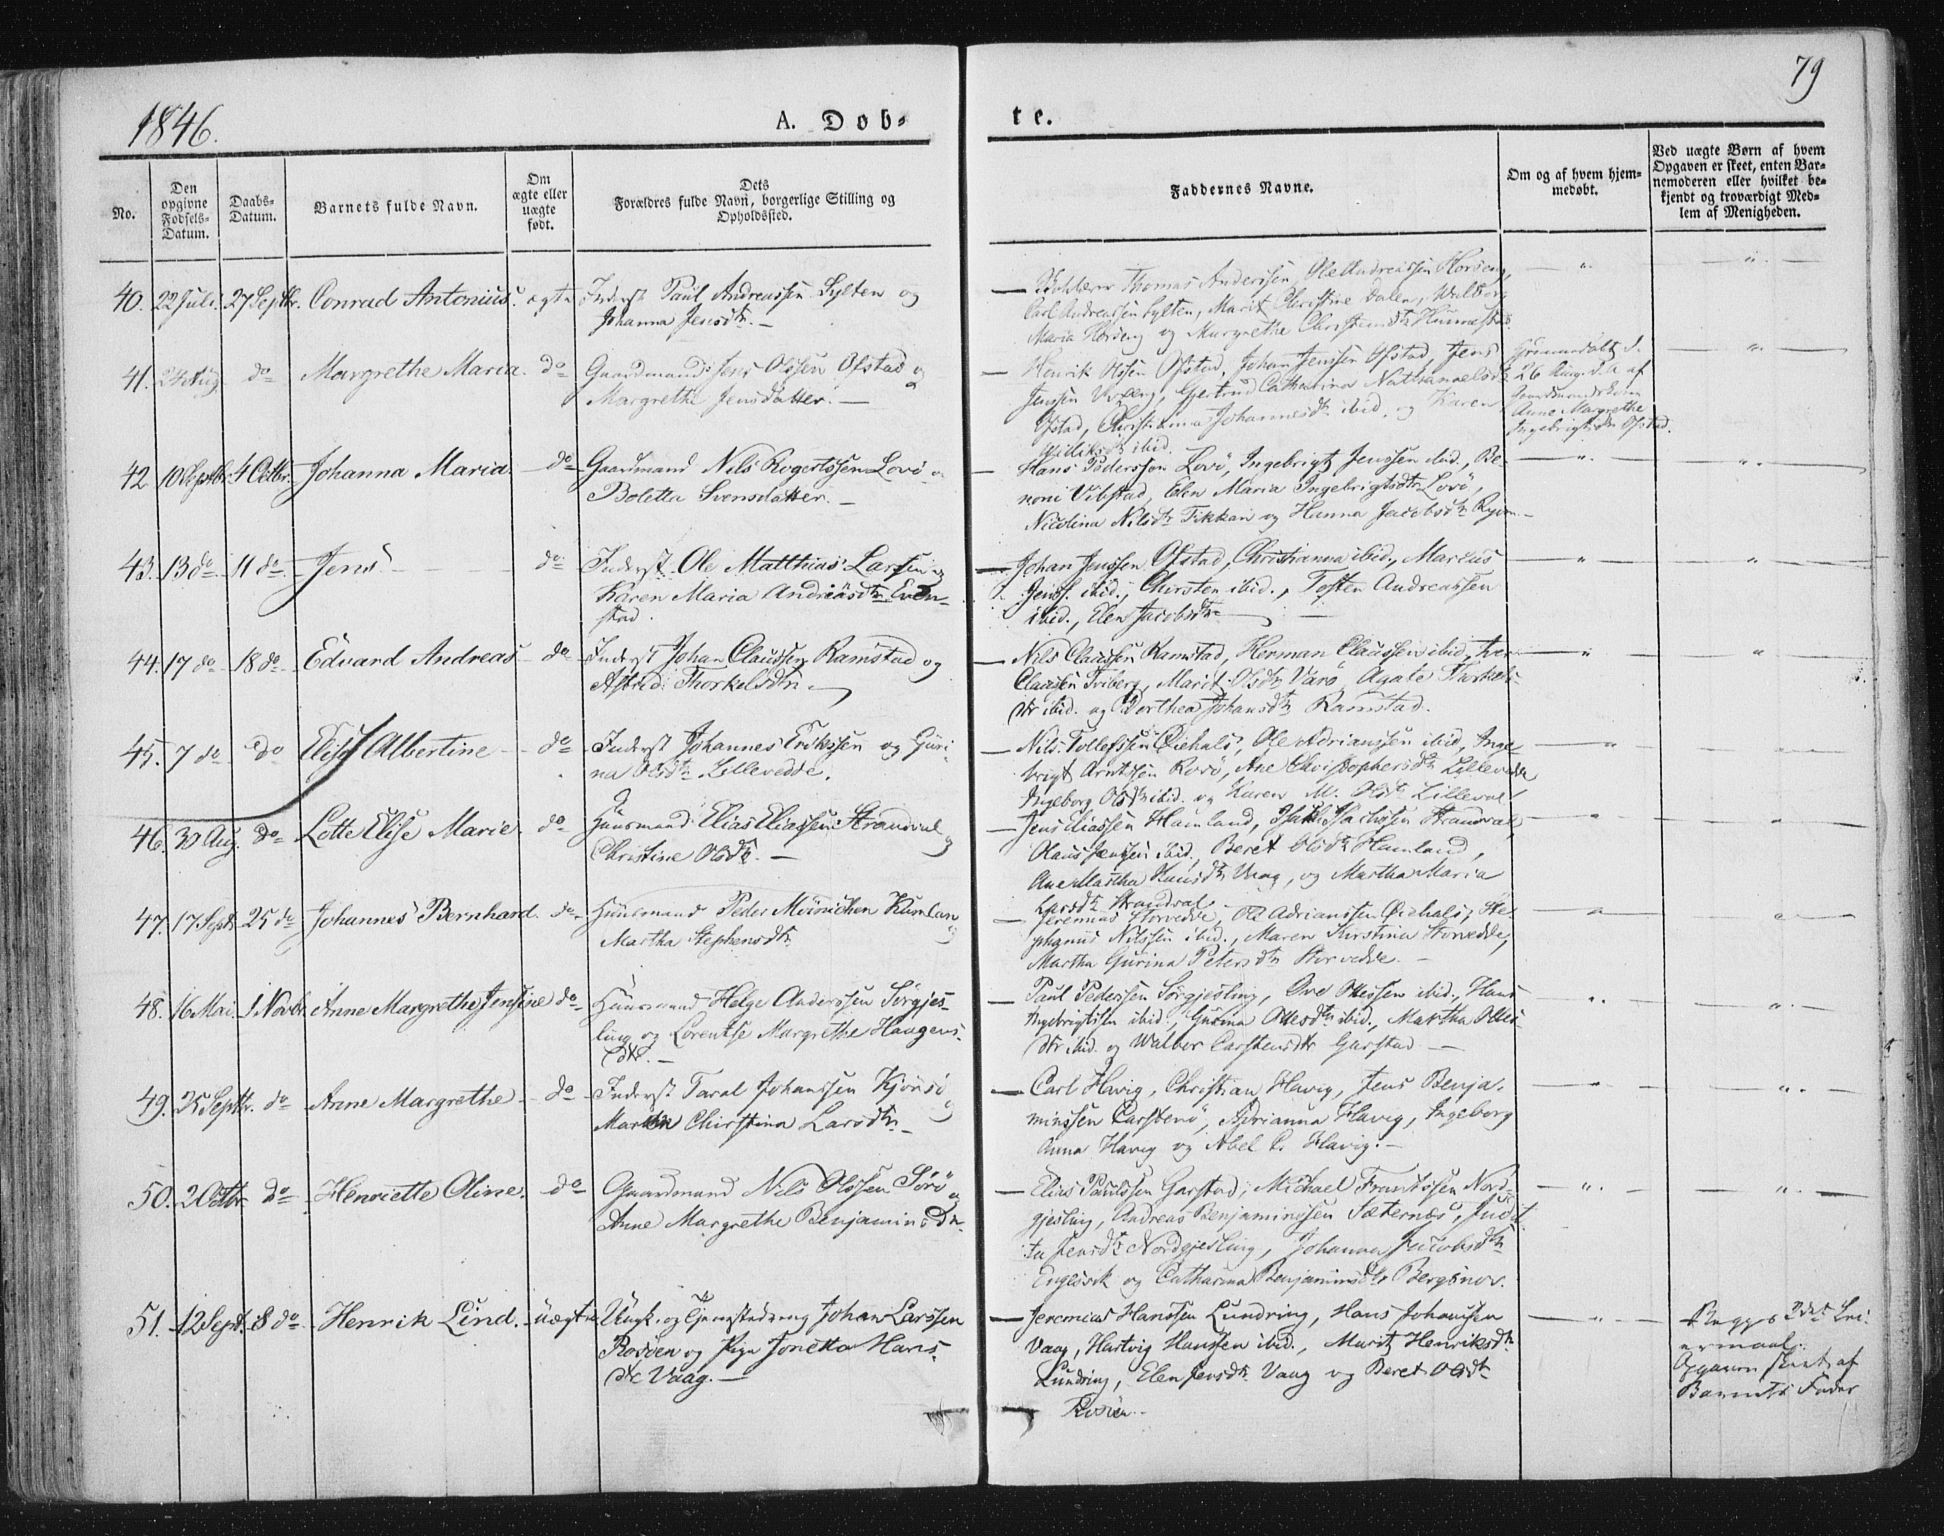 1846.
A. Dob-
te.
79
No.
Den opgivne Fødsels-Datum.
Daabs-Datum.
Barnets fulde Navn.
Om ægte eller uægte født.
Dets Forældres fulde Navn, borgerlige Stilling og Opholdssted.
Faddernes Navne.
Om og af hvem hjem-medøbt.
Ved uægte Børn af hvem Opgaven er skeet, enten Bar-nemoderen eller hvilket be-kjendt og troværdigt Med-lem af Menigheden.
40. 22 Juli. 27 Septbr. Conrad Antonius. ægte Inderst Paul Andreassen Sylten og
Johanna Jensdtr. —
Thomas Anderssen, Ole Andreassen Horseng,
Carl Andreassen Sylten, Marit Christine Dalen, Walborg
Maria Horseng og Margrethe
41. 24 Aug. do Margrethe Maria. do Gaardmand Jens Olssen Ofstad og
Margrethe Jensdatter. —
Henrik Olssen Ofstad, Johan Jenssen Ofstad, Jens
Jenssen Gjertrud Catharina Nathanaelsdtr
Ofstad, Christianna Johannesdtr ibid. og Karen
ibid.
26 Aug. af
Anne Margrethe
Ingebrigtsdtr Ofstad.
42 10 Septbr. 4 Octbr. Johanna Maria. do Gaardmand Nils Rogertssen Lovö og
Boletta Svensdatter. —
Hans Pederssen Lovö, Ingebrigt Jenssen ibid., Be-
noni Vibstad, Elen Maria Ingebrigtsdtr Lovö,
Nicolina Nilsdtr Fikkan og Hanna Jacobsdtr
43. 13 do 11 do. Jens do Inderst Ole Matthias Larssen og
Karen Maria Andreasdtr Even-
stad.
Johan Jenssen Ofstad, Christianna ibid., Marcus
Jenss. ibid., Chirsten ibid., Tosten Andreassen
ibid., Elen Jacobsdtr
44. 17 do 18 do. Edvard Andreas do Inderst Johan Claussen Ramstad og
Astrid Thorkelsdtr. —
Nils Claussen Ramstad, Herman Claussen ibid., Iver
Claussen Friberg, Marit Olsdtr Varö, Agate Thorkels-
dtr ibid. og Dorthea Johansdtr Ramstad.
45. 7 do do Elise Albertine do Inderst Johannes Erikssen og Guri-
na Olsdtr Lillevedde.
Nils Tollefssen Qvehals, Ole Adrianssen ibid., Inge-
brigt Arntssen Rosö, Ane Christophersdtr Lillevedde
Ingeborg Olsdtr ibid. og Karen M. Olsdtr
46. 30 Aug. do Lotte Elise Marie. do Huusmand Elias Eliassen Strandval og
Christine Olsdtr. —
Jens Eliassen Hamland, Isak Strandval,
Olaus Jenssen ibid., Beret Olsdtr Hamland,
Ane Martha Hansdtr Vaag, og Martha Maria
Larsdtr Strandval
47. 17 Septr. 25 do Johannes Bernhard. do Huusmand Peder Mörichen
Martha Stephensdtr
Jeremias Storvedde, Ole Adrianssen Qvehals, Ste-
phanus Nilssen ibid., Maren Kirstina Storvedde,
Martha Gurina Petersdtr Storvedde. —
48. 16 Mai. 1 Novbr. Anne Margrethe Jensine do Huusmand Helge Anderssen Sörgjes-
ling og Lorentse Margrethe Haagens-
dtr. —
Paul Pederssen Sörgjesling, Ove Olssen ibid., Hans
Ingebrigtssen ibid., Gurina Olsdtr ibid., Martha
dtr ibid. og Walbor Carstensdtr Garstad —
49. 25 Septbr. do Anne Margrethe do Inderst Taral Johanssen Kjönsö og
Maren Chirstina Larsdtr. —
Carl Havig, Christian Havig, Jens Benja-
minssen Carstenö, Adrianna Havig, Ingeborg
Anna Havig og Abel C. Havig. —
50. 2 Octbr do Henriette Oline. do Gaardmand Nils Olssen Sörö og
Anne Margrethe Benjaminsdtr.
Elias Paulssen Garstad, Michael Frantssen Nord-
gjesling, Andreas Benjaminssen Sæternæs, Judit-
ta Jensdtr Nordgjesling, Johanna Jacobsdtr
Engesvik og Catharina Benjaminsdtr Bergsnov.
51. 12 Sept. 8 do Henrik Lind. uægte Ungk. og Tjenestedreng Johan Larssen
Rosöen og Pige Jonetta Hans-
dtr Vaag. —
Jeremias Hanssen Lundring, Hans Johanssen
Vaag, Hartvig Hanssen ibid., Marit Henriksdtr
Lundring, Elen Jensdtr Vaag og Beret Olsdtr
Rosöen.
Begges 2det Lei-
ermaal.
Opgaven skeet af
Barnets Fader